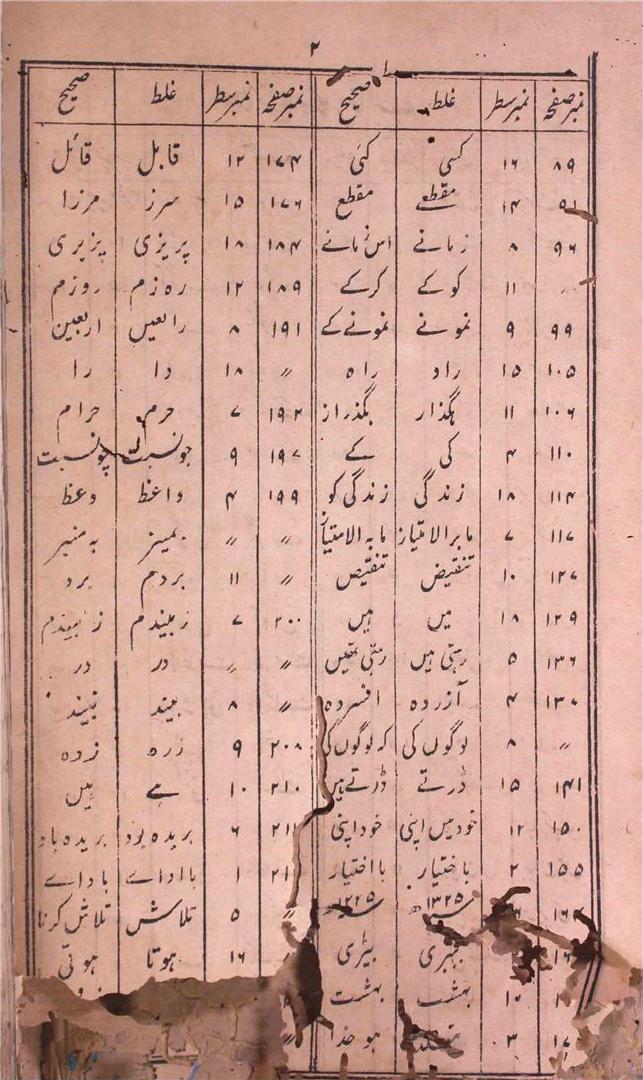 ۲
نمبر صفحہ نمبر سطر غلط صحیح نمبر صفحہ نمبر سطر غلط صحیح
۸۹ ۱۶ کسی کئی ۱۷۴ ۱۲ قابل قائل
۹۱ ۱۴ مقطعے مقطع ۱۷۶ ۱۵ سرز مرزا
۹۶ ۸ زمانے اس زمانے ۱۸۴ ۱۸ پریزی پزیری
۱۱ کوکے کرکے ۱۸۹ ۱۲ رہ زم روزم
۹۹ ۹ نمونے نمونے کے ۱۹۱ ۸ رابعیں اربعین
۱۰۵ ۱۵ راو راہ 〃 ۱۸ دا را
۱۰۶ ۱۱ بگذار بگذراز ۱۹۲ ۷ حرم حرام
۱۱۰ ۴ کی کے ۱۹۷ ۹ جونسبت چونسبت
۱۱۴ ۱۸ زندگی زندگی کو ۱۹۹ ۴ واعظ وعظ
۱۱۷ ۷ مابرالامتیاز مابہ الامتیاز 〃 〃 بمینز بہ منبر
۱۲۷ ۱۰ تنقیض تنقیص 〃 ۱۱ بردم برد
۱۲۹ ۱۸ میں ہیں ۲۰۰ ۷ زبیندم
۱۳۶ ۵ رہتی ہیں رہتی تھیں 〃 〃 در در
۱۳۷ ۴ آزردہ افسردہ 〃 ۸ بیند
〃 ۸ لوگوں کی کہ لوگوں کی ۲۰۸ ۹ زرہ زدہ
۱۴۱ ۱۵ ڈرتے ڈرتے ہیں ۲۱۰ ۱۰ ہے ہیں
۱۵۰ ۱۲ خود میں اپنی خود اپنی ۶ بریدہ بود بریدہ باد
۱۵۵ ۲ باختیار بااختیار ۱ بااداے باداے
۱۳۲۵ھ ۱۲۲۵ھ ۵ تلاش تلاش کرنا
بیڑی ۱۶ ہوتا ہوتی
۱۰ بہشب بہشت
۳ ہو خدا